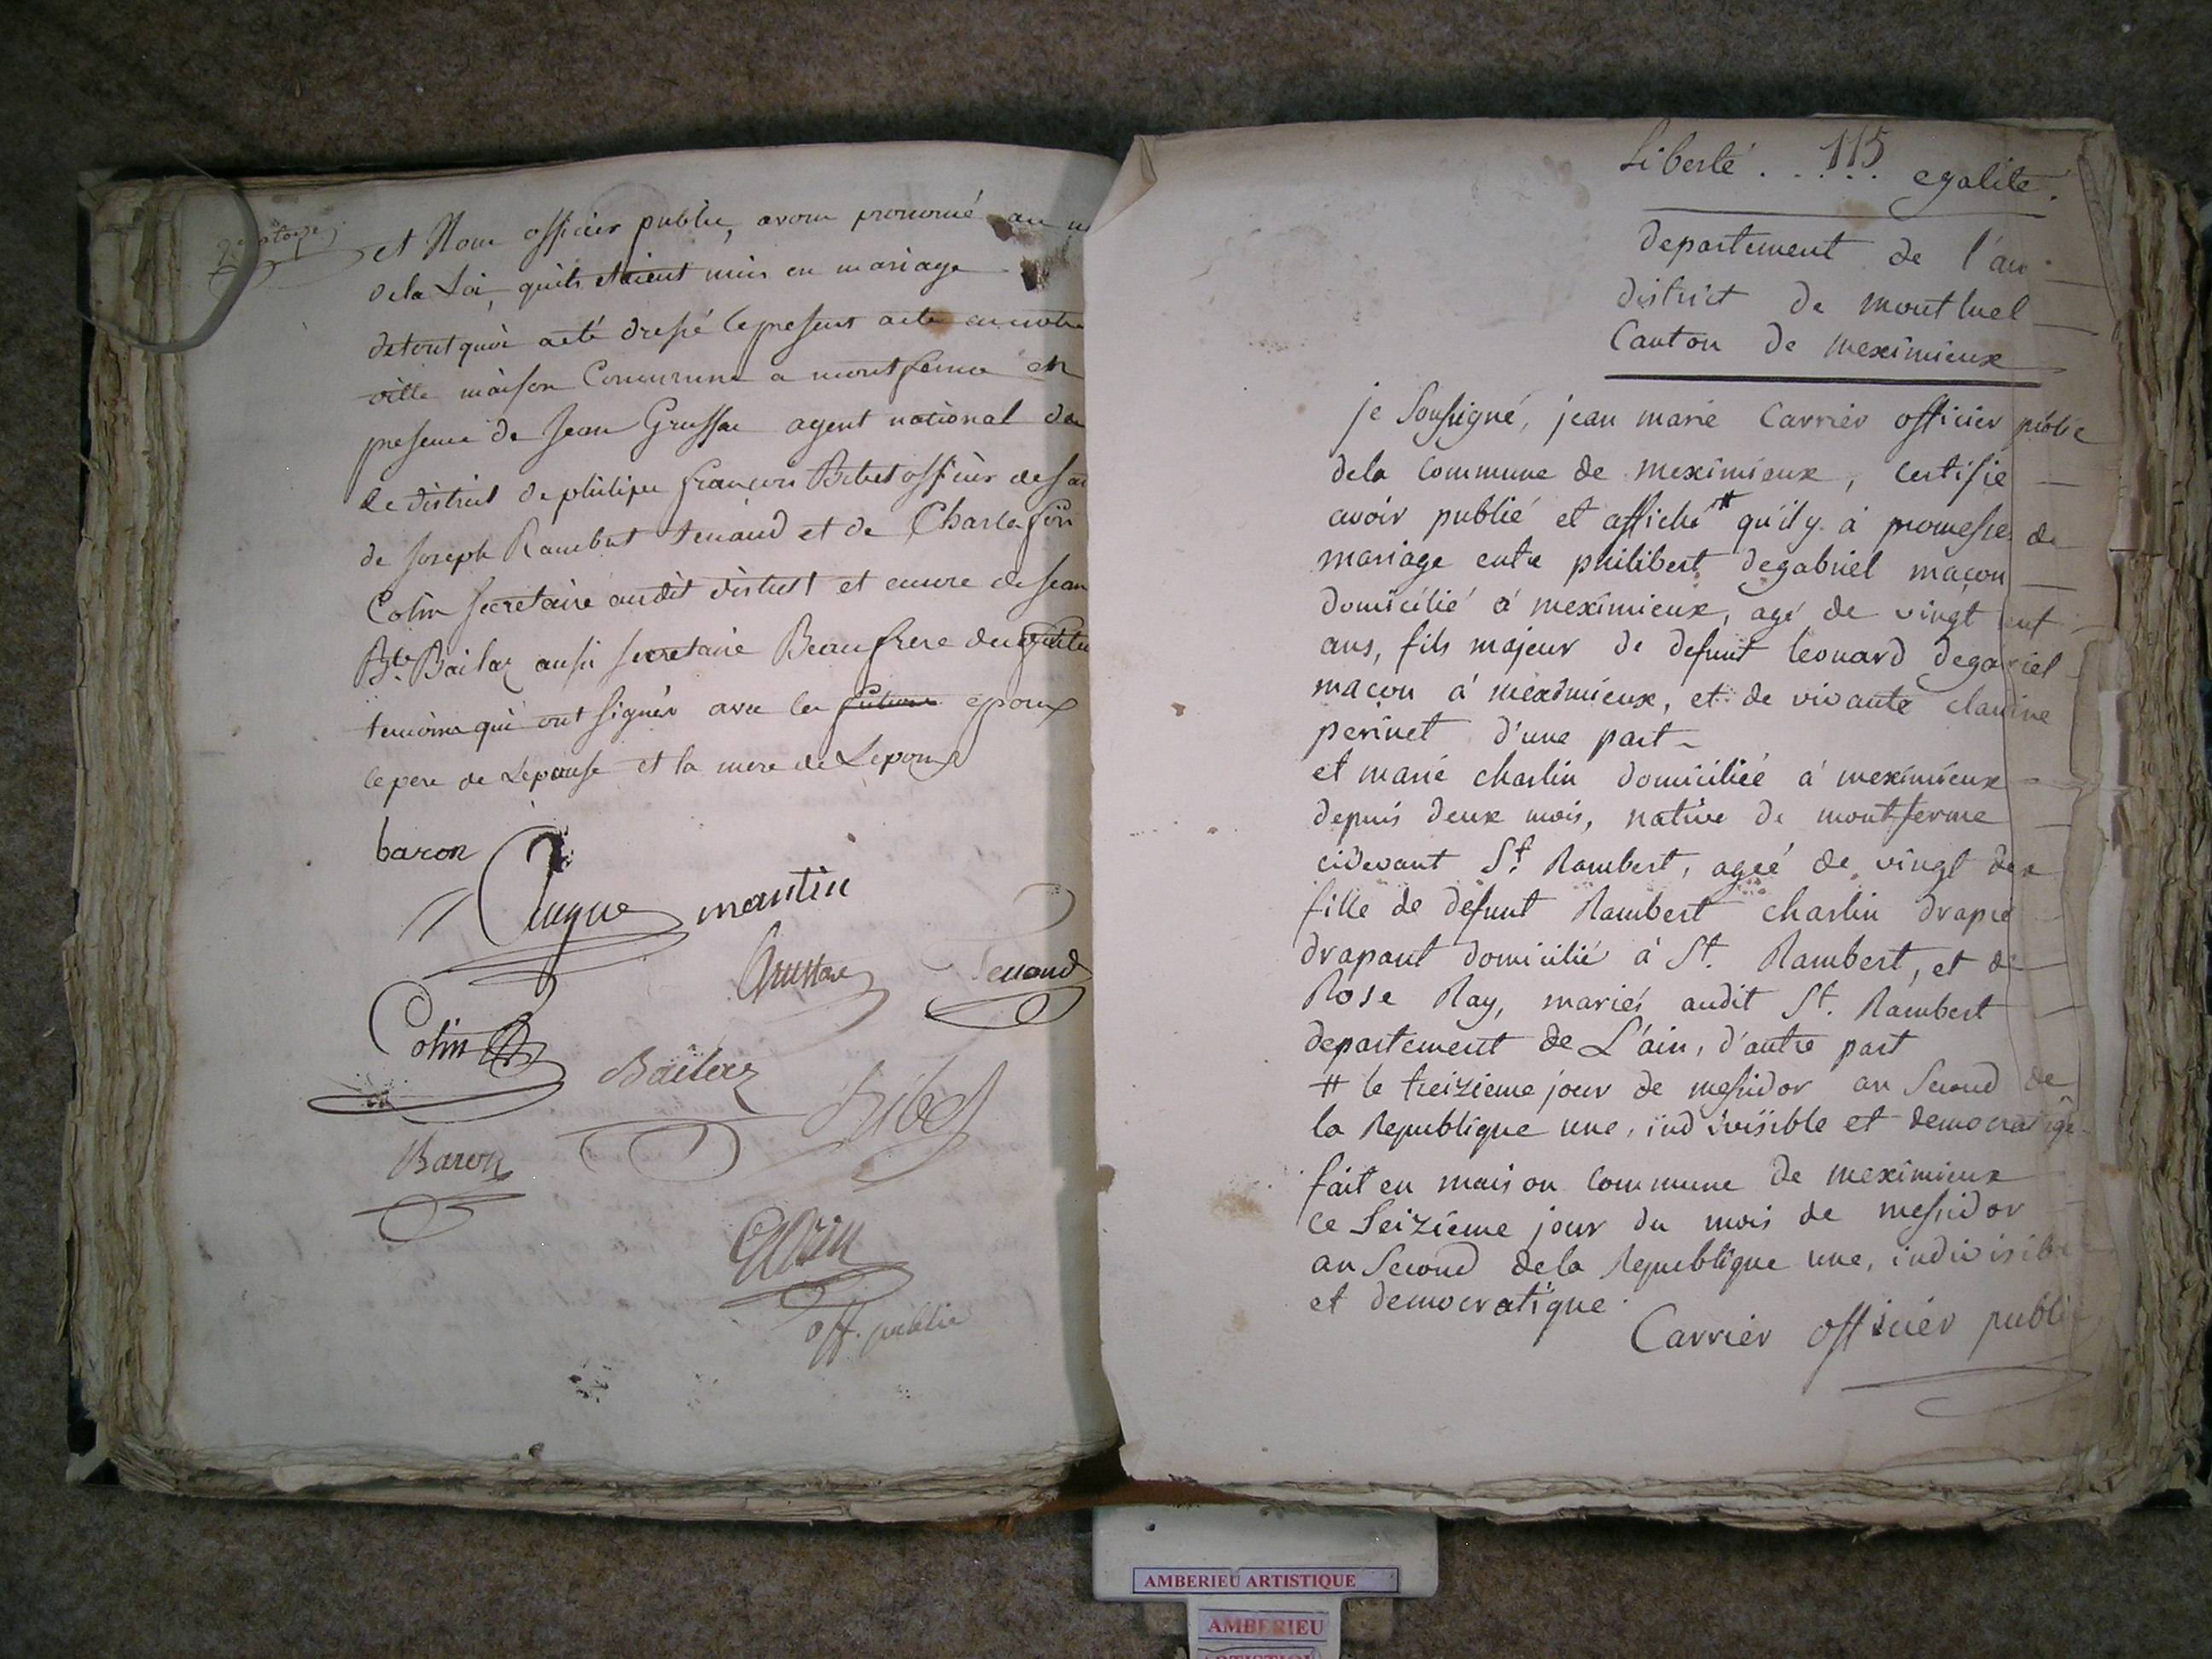 et Nous officier public, avons prononcé au
de la Loi, qu'ils etaient unis en mariage
de tout quoi a été dressé le present acte en notre
ville maison Commune a montferme en
presence de Jean Grussae agent national de
le district de philipe françois officier de
de Joseph Rambert tenand et de Charles
Colin secretaire audit district et encore de Jean
Bte. Bailaz aussi secretaire Beaufrere du
temoins qui ont signés avec les future epoux
le pere de Lepouse et la mere de Lepoux
baron
martin
Tenand
Colin
Bailaz
Baron
off. public
115
Liberté . . . . . egalité.
departement de l'ain
district de montluel
Canton de meximieux
je Soussigné, jean marie Carrier officier public
dela Commune de meximieux, certifie
avoir publié et affiché # qu'il y a promesse de
mariage entre philibert degabriel maçon
domicilié à meximieux, agé de vingt
ans, fils majeur de defunt leonard degabriel
maçon à meximieux, et de vivante claudine
perinet d'une part
et marie charlin domiciliée à meximieux
depuis deux mois, native de montferme
cidevant St. Rambert, ageé de vingt deux
fille de defunt Rambert charlin drapié
drapant domicilié à St. Rambert, et de
Rose Ray, mariés audit St. Rambert
departement de L'ain, d'autre part
# le treizieme jour de messidor an Second de
la Republique une, indivisible et democratiqe
fait en maison Commune de meximieux
ce Seizieme jour du mois de messidor
an Second dela Republique une, indivisible
et democratique.
Carrier officier public
AMBERIEU ARTISTIQUE
AMBERIEU
ARTISTIQUE